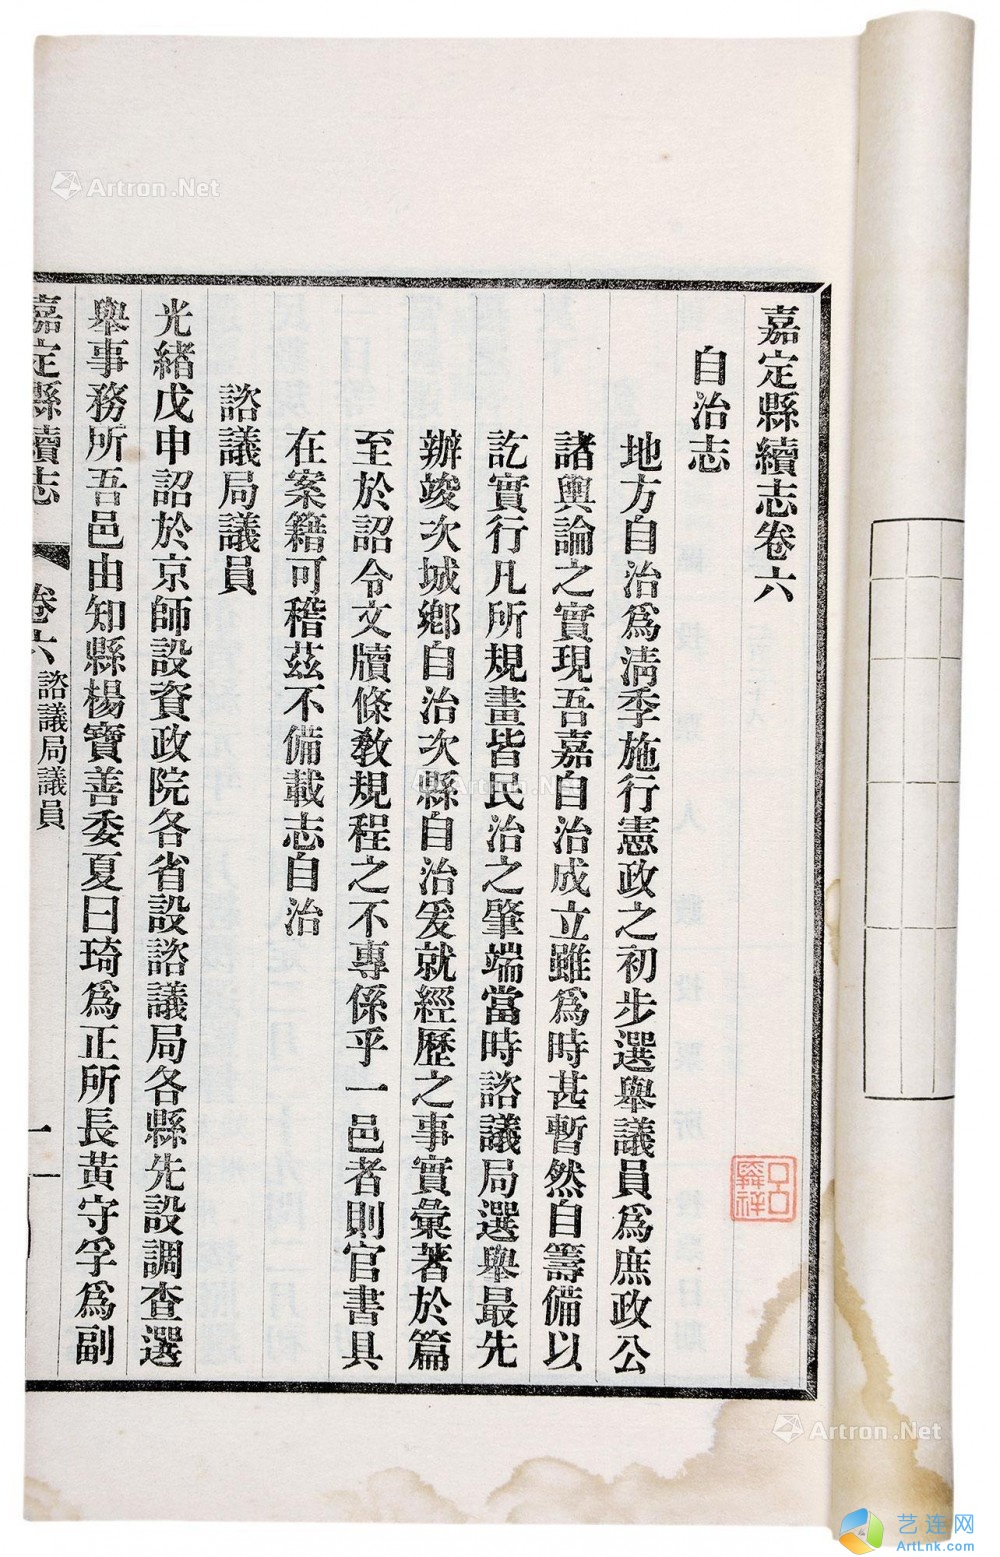 嘉定縣續志卷六
自治志
地方自治爲淸季施行憲政之初步選舉議員爲庶政公
諸輿論之實現吾嘉自治成立雖爲時甚暫然自籌備以
訖實行凡所規畫皆民治之肇端當時諮議局選舉最先
辦竣次城鄉自治次縣自治爰就經歷之事實彙著於篇
至於詔令文牘條敎規程之不專係乎一邑者則官書具
在案籍可稽茲不備載志自治
諮議局議員
光緖戊申詔於京師設資政院各省設諮議局各縣先設調查選
舉事務所吾邑由知縣楊寶善委夏曰琦爲正所長黃守孚爲副
嘉定縣續志 卷六 諮議局議員 一
Artron.Net
Artron.Net
Artron.Net
艺连网
ArtLnk.com